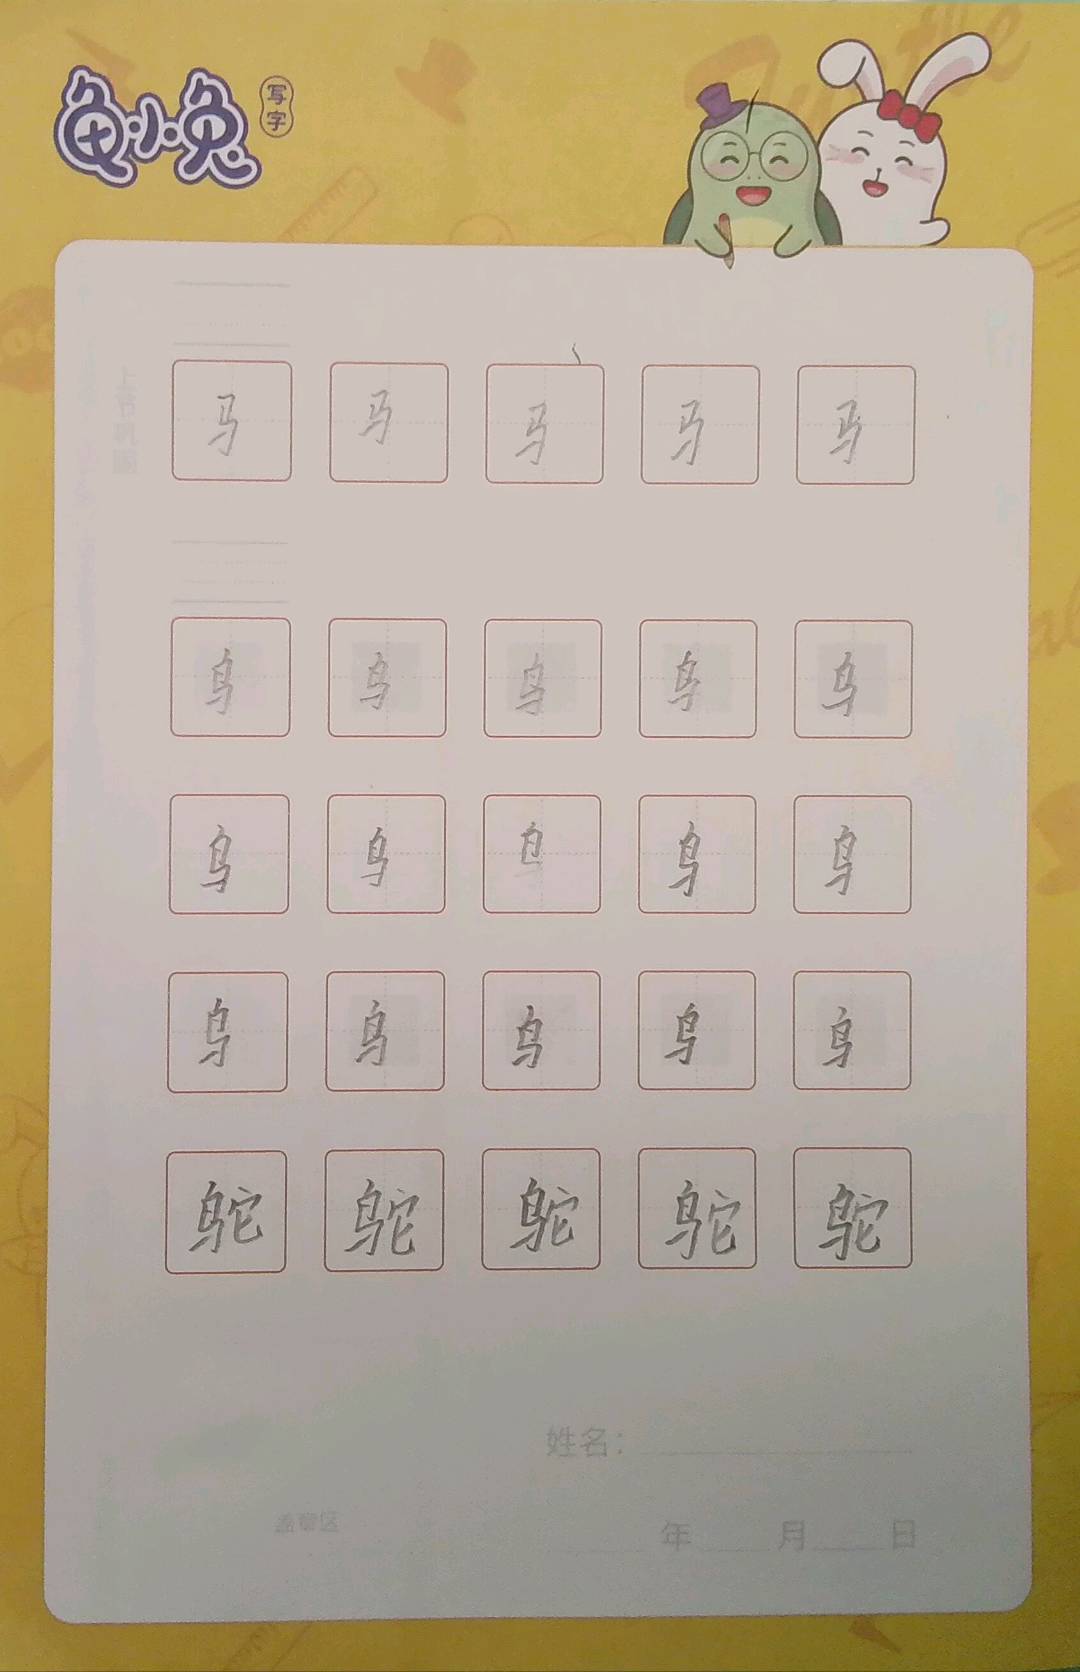 龟小兔
写字
马 马 马 马 马
乌 乌 乌 乌 乌
乌 乌 乌 乌 乌
乌 乌 乌 乌 乌
鸵 鸵 鸵 鸵 鸵
姓名：
盖章区
年 月 日